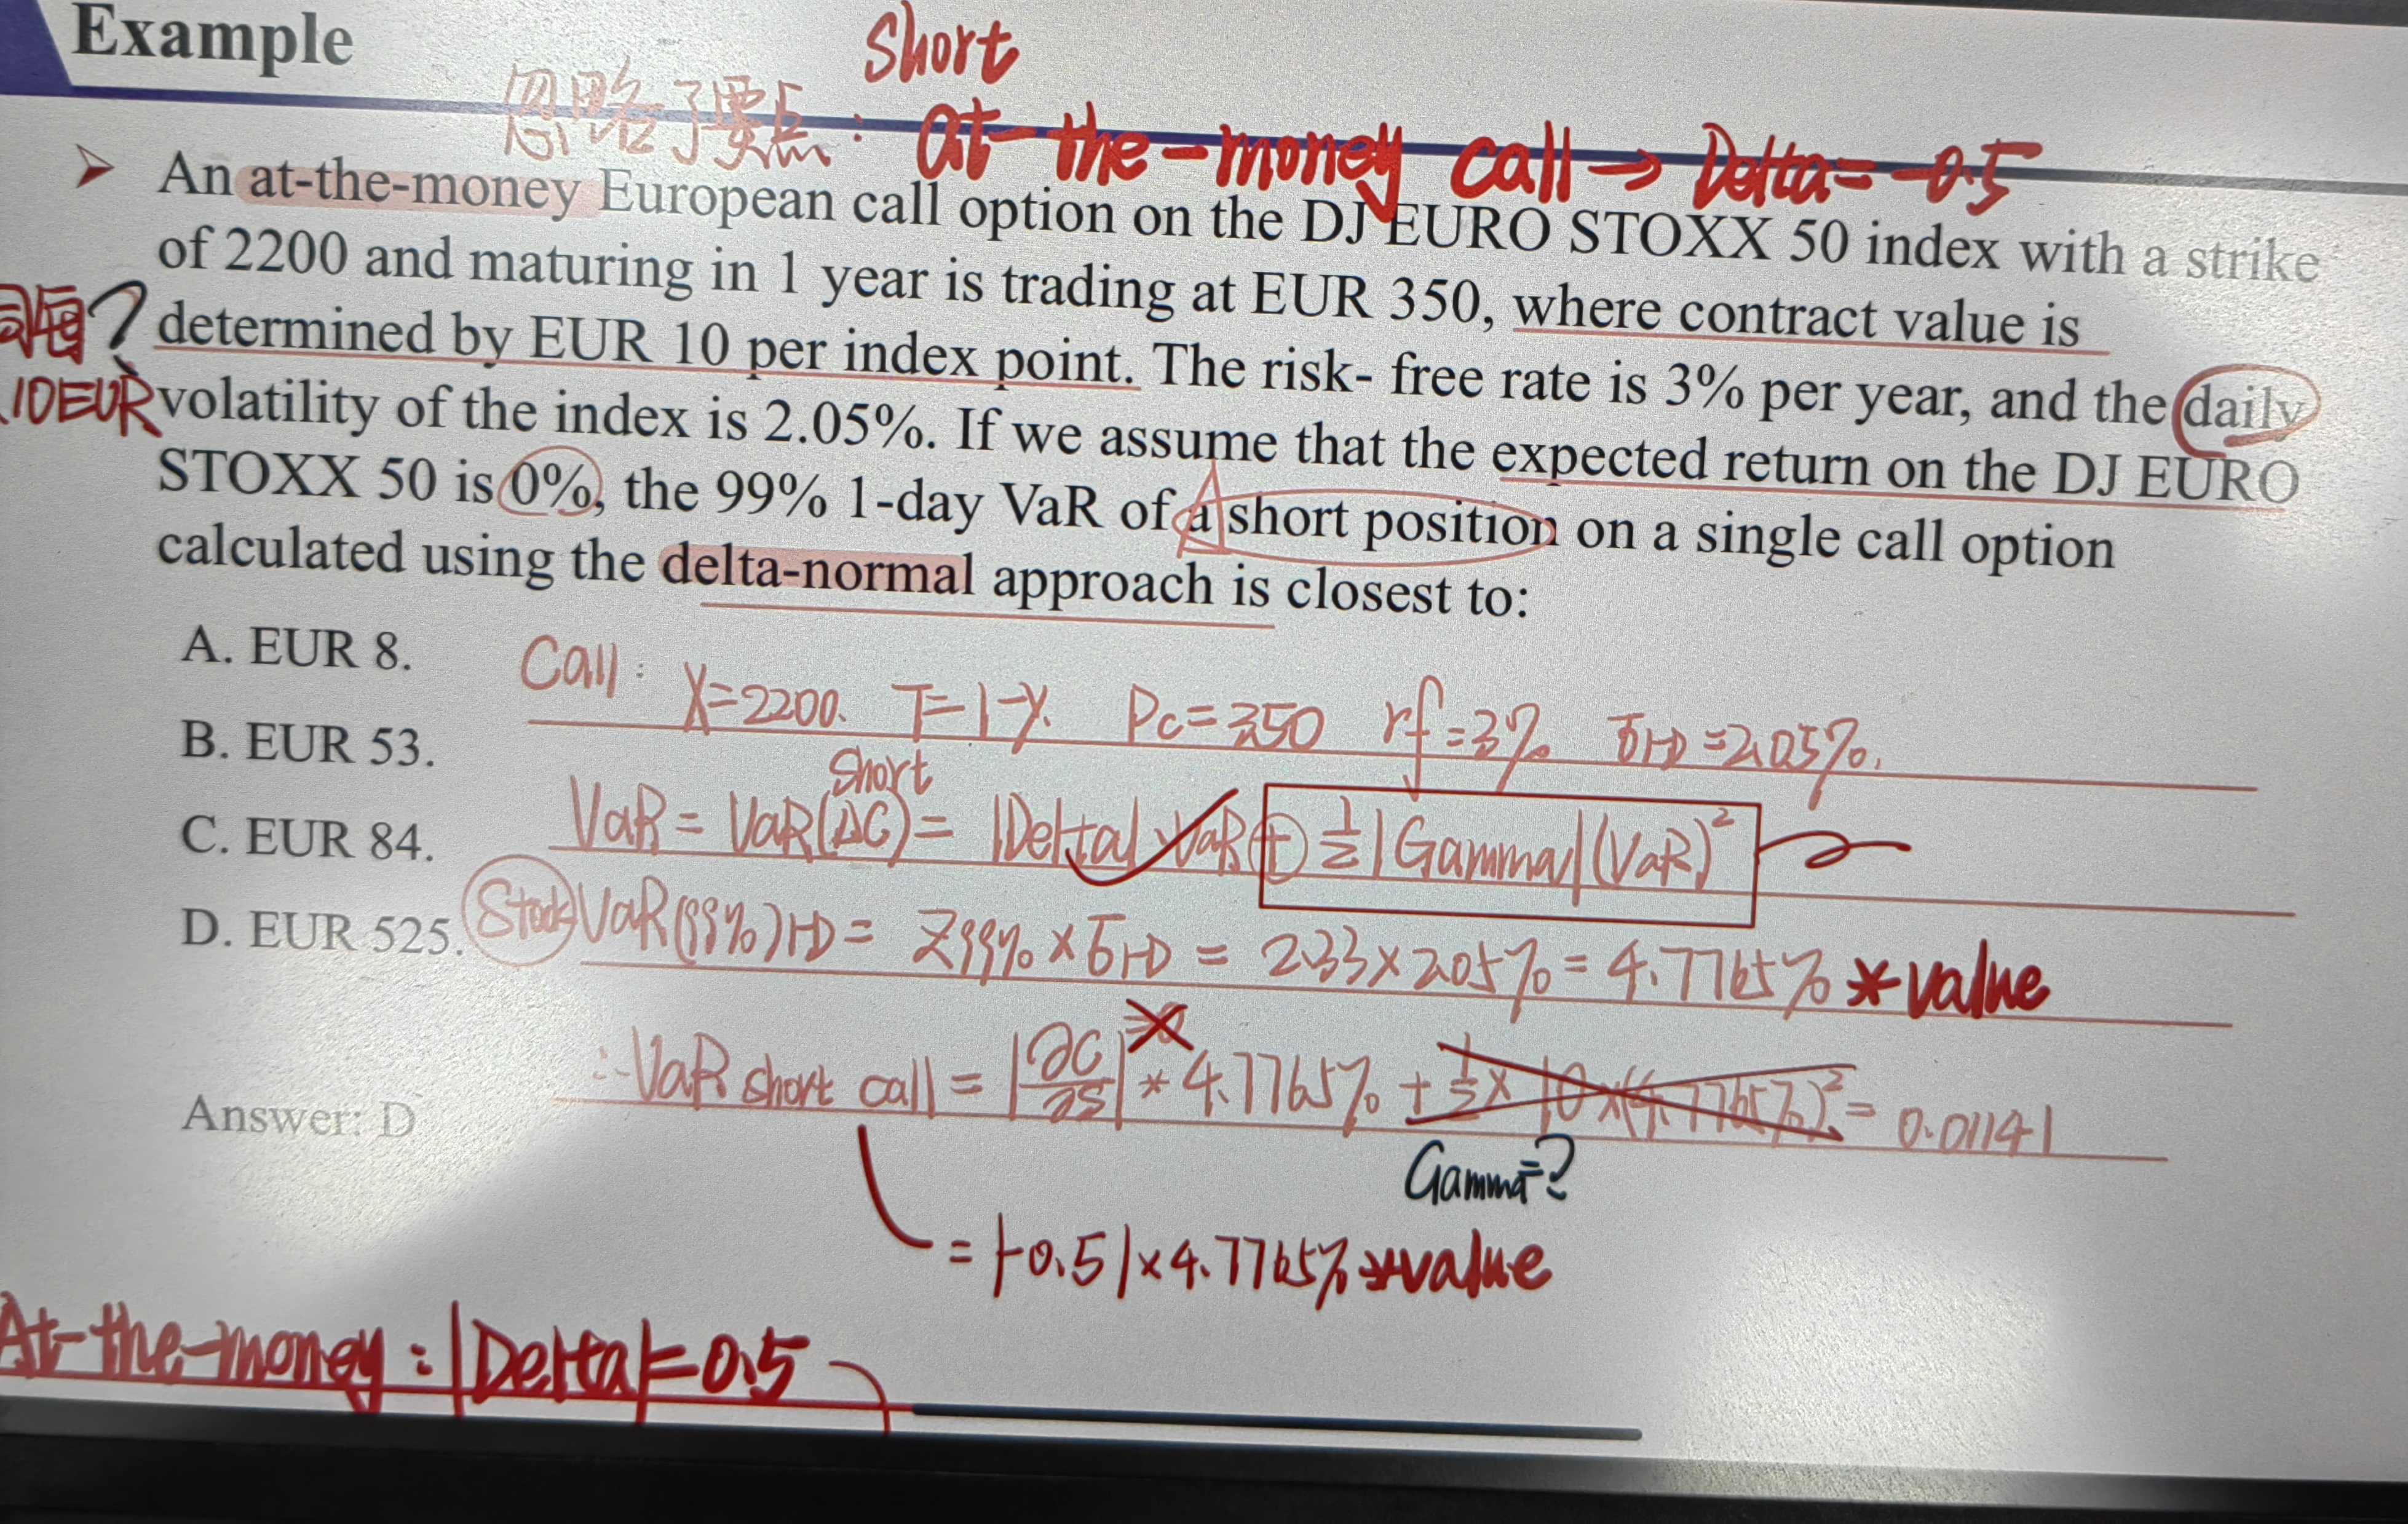 Example
Short
忽略了要点: at-the-money call → Delta = -0.5
➤ An at-the-money European call option on the DJ EURO STOXX 50 index with a strike
of 2200 and maturing in 1 year is trading at EUR 350, where contract value is
determined by EUR 10 per index point. The risk- free rate is 3% per year, and the daily
10EUR
volatility of the index is 2.05%. If we assume that the expected return on the DJ EURO
STOXX 50 is 0%, the 99% 1-day VaR of a short position on a single call option
calculated using the delta-normal approach is closest to:
A. EUR 8.
Call: X=2200. T=1-y. Pc=350 rf=3% σ1-D=2.05%.
B. EUR 53.
short
VaR = VaR(ΔC) = |Delta| VaR + 1/2 |Gamma| (VaR)²
C. EUR 84.
D. EUR 525.
Stock VaR(99%)1-D = Z99% × σ1-D = 2.33×2.05% = 4.7765% * value
∴ VaR short call = |∂C/∂S| * 4.7765% + 1/2 × 10 × (4.7765%)² = 0.01141
Answer: D
Gamma=?
= |-0.5| × 4.7765% * value
At-the-money: |Delta|=0.5